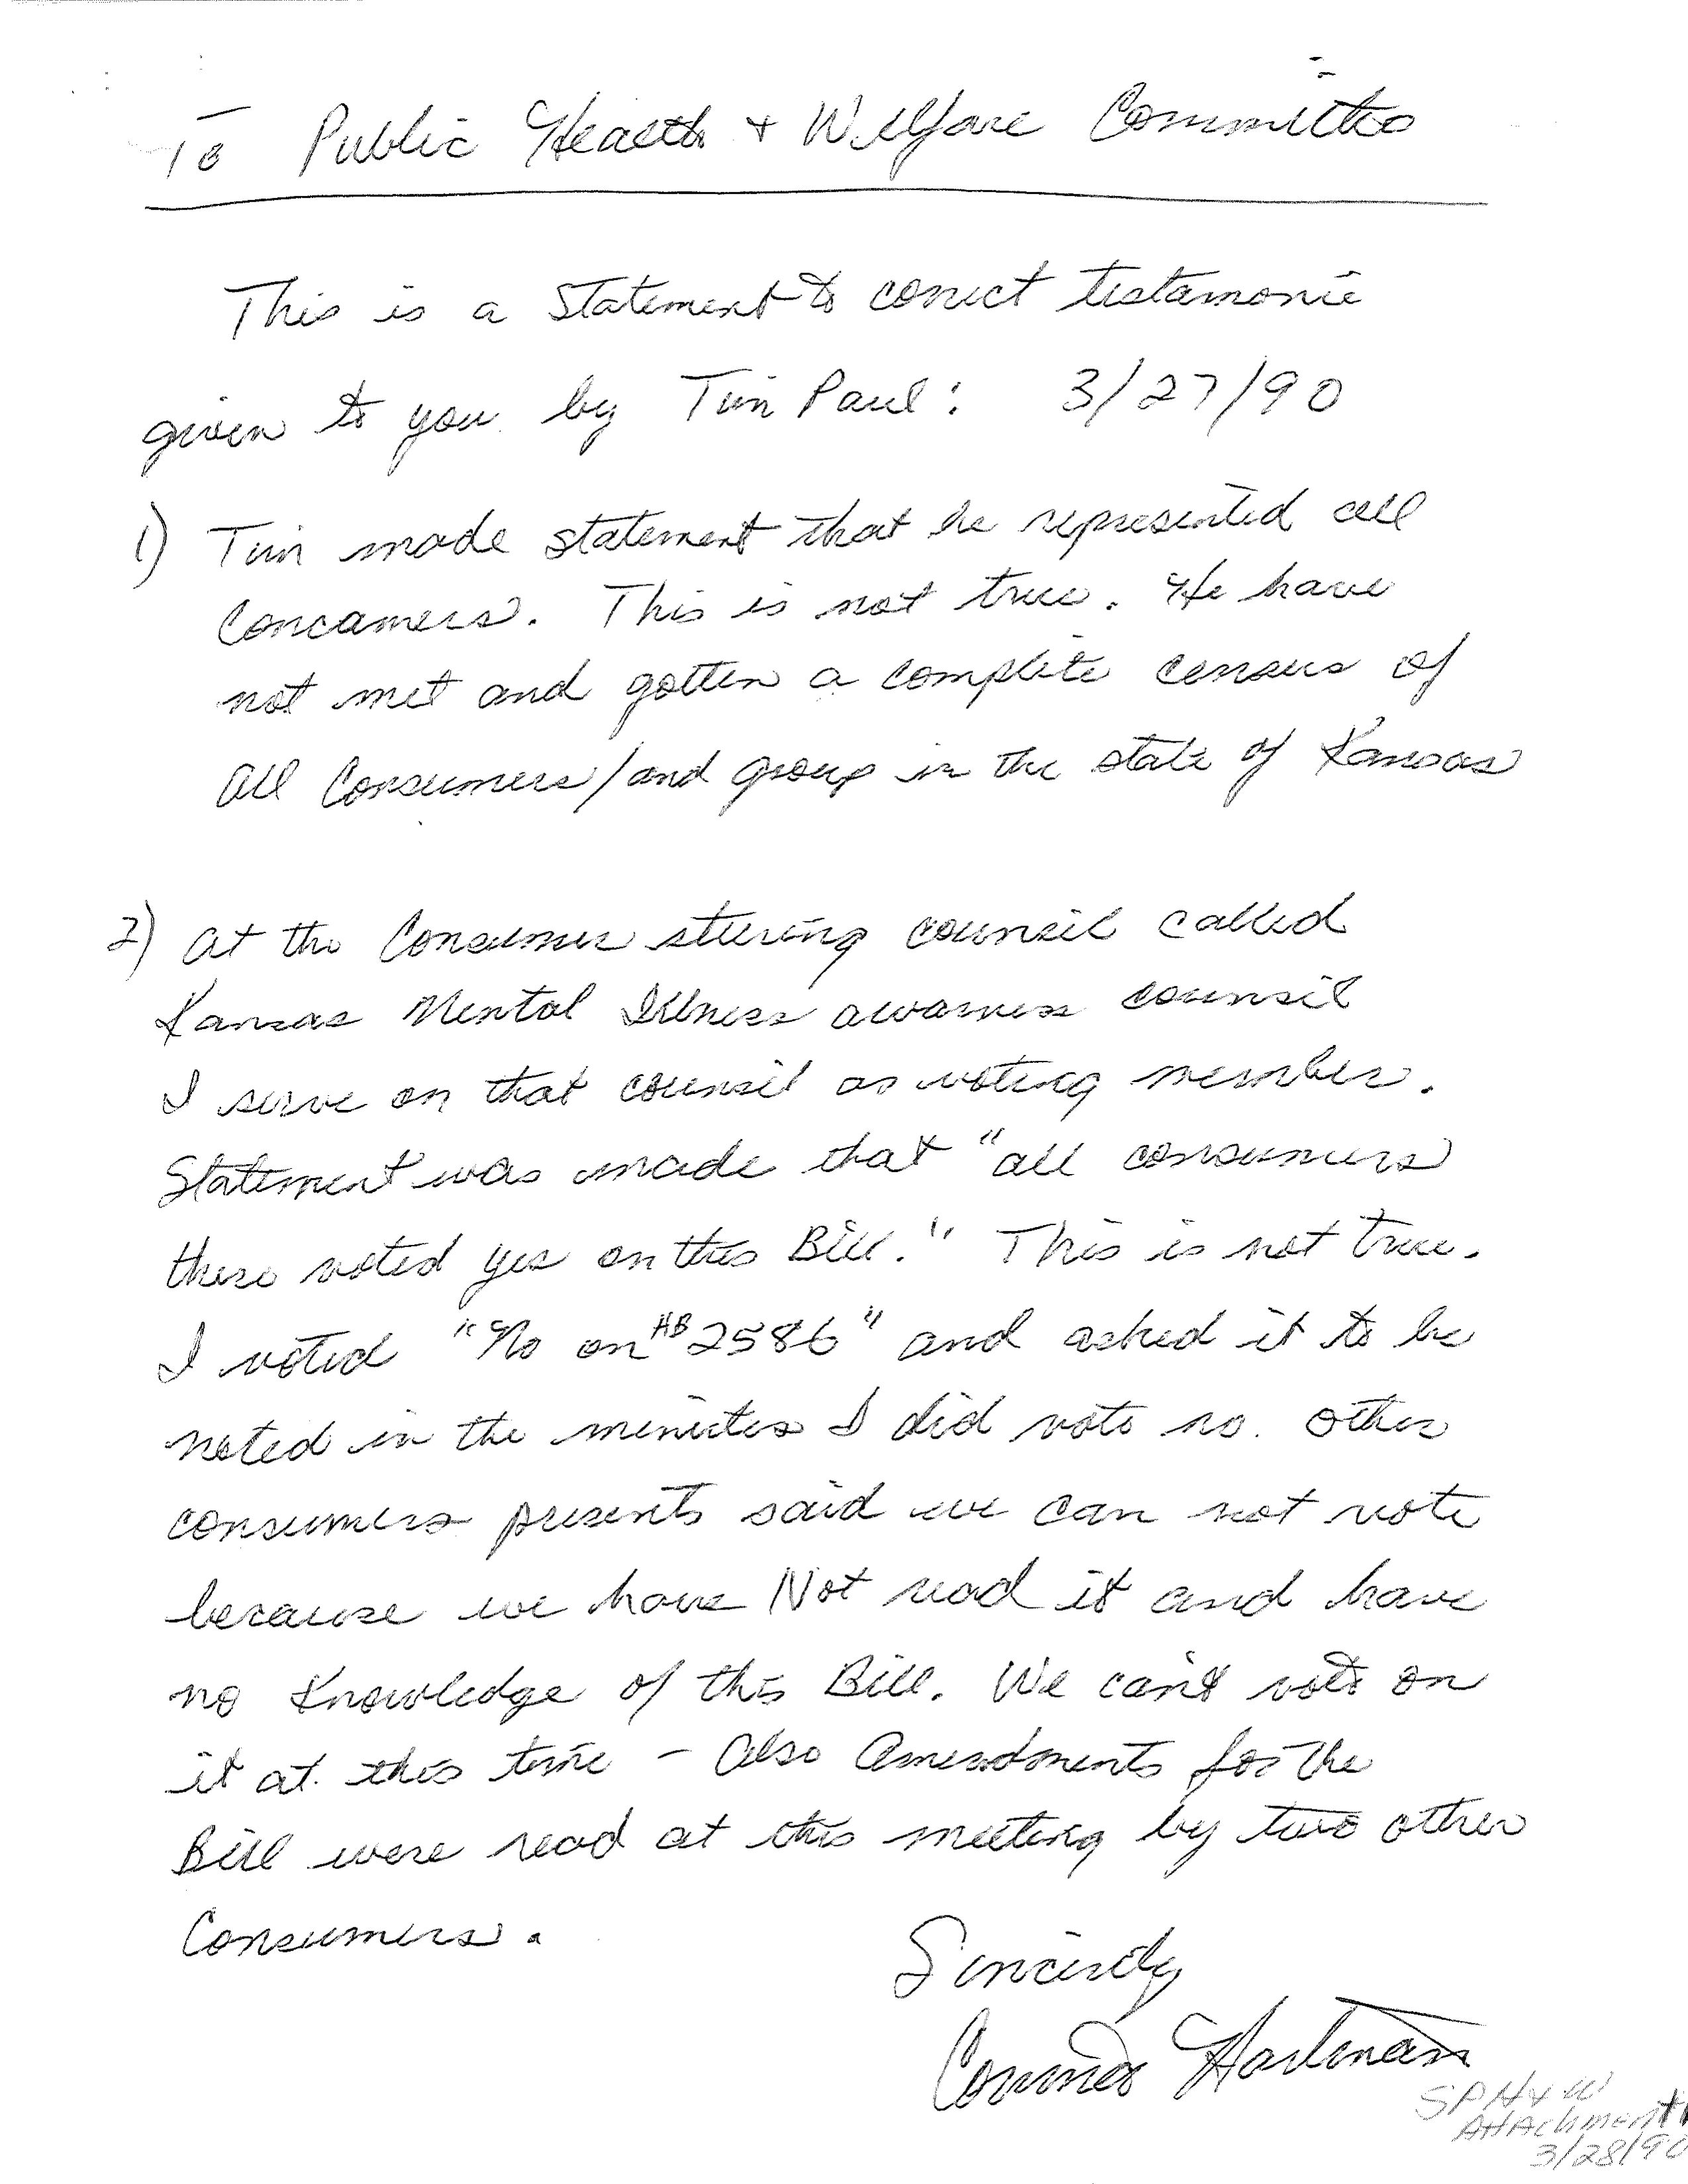 To Public Health + Welfare Committee
This is a Statement to corect testamonie
given to you by Tim Paul: 3/27/90
1) Tim made statement that he represented all
Concamers. This is not true. He have
not met and gotten a complete census of
all Consumers/and group in the state of Kansas
2) at the Consumer steering counsil called
Kansas Mental Illness awarness counsil
I serve on that counsil as voting member.
Statement was made that "all consumers
there voted yes on this Bill." This is not true.
I voted "No on HB 2586" and asked it to be
noted in the minutes I did vote no. Other
consumers presents said we can not vote
because we have Not read it and have
no Knowledge of this Bill. We can't vote on
it at this time - Also Amendments for the
Bill were read at this meeting by two other
Consumers.
Sincerely
Connie Hartman
SPH+W
Attachment 1
3/28/90